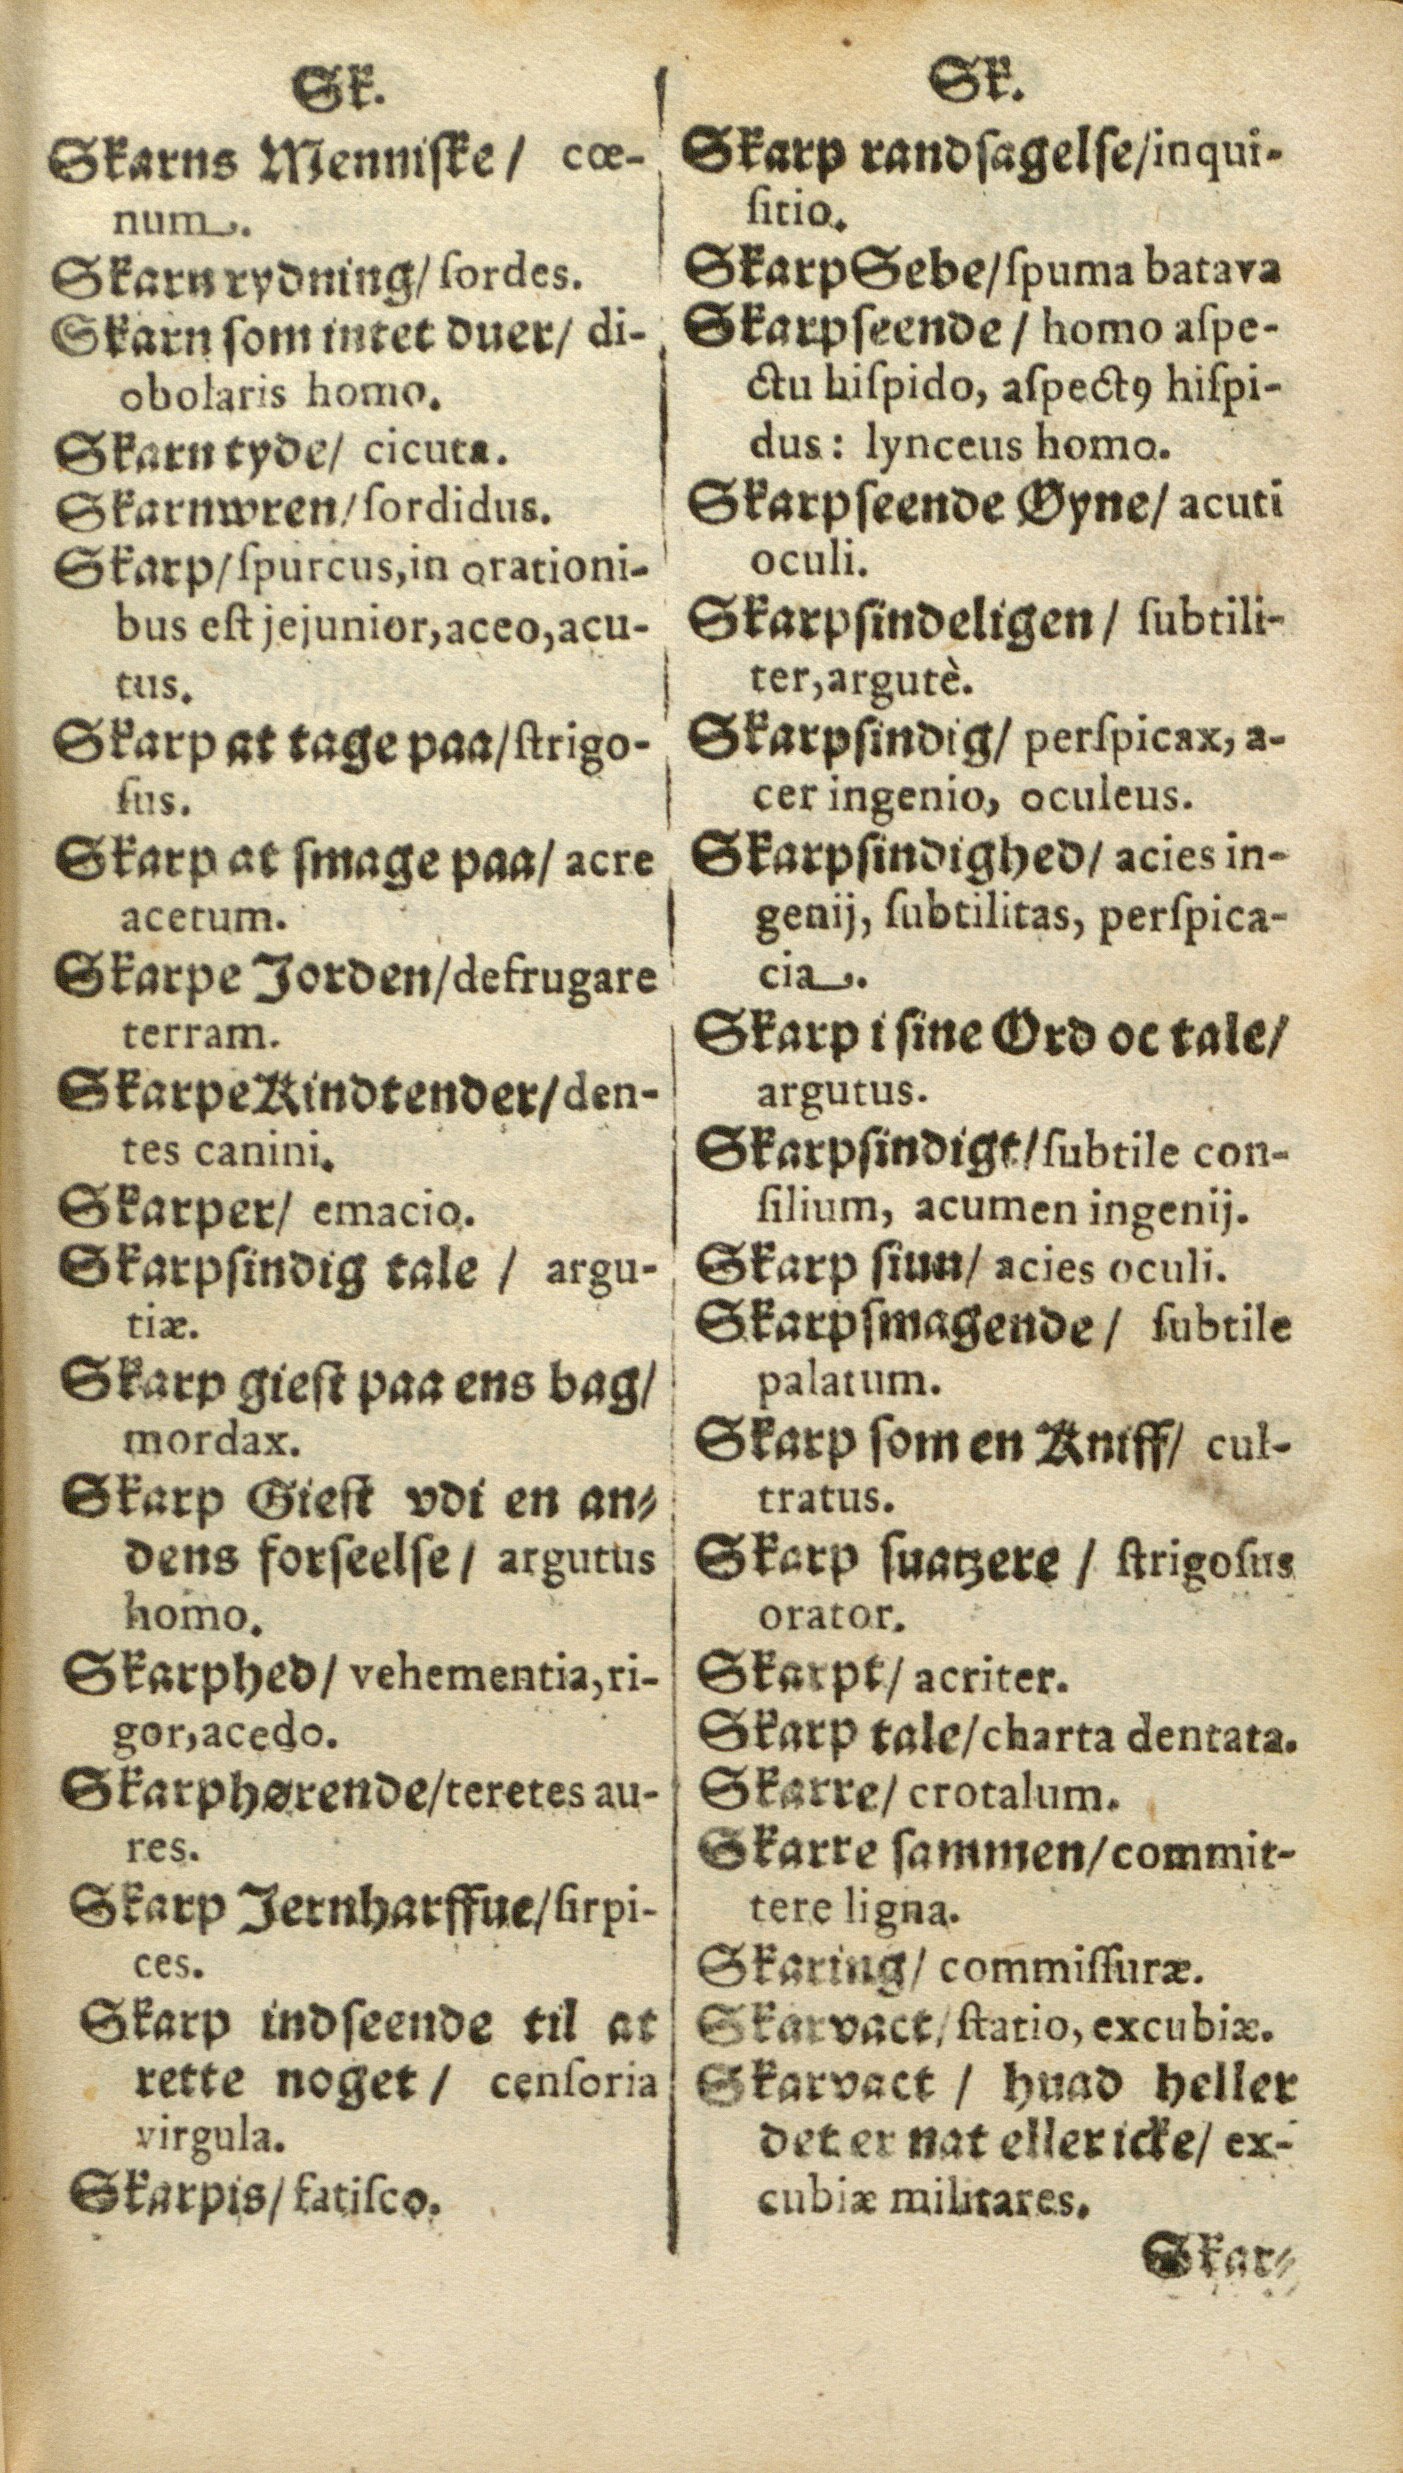 Sk.
Skarns Menniſke / cœ-
num.
Skarn rydning/ ſordes.
Skarn ſom intet duer/ di-
obolaris homo.
Skarn tyde/ cicuta.
Skarnwren/ ſordidus.
Skarp/ ſpurcus, in orationi-
bus eſt jejunior, aceo, acu-
tus.
Skarp at tage paa/ ſtrigo-
ſus.
Skarp at ſmage paa/ acre
acetum.
Skarpe Jorden/ defrugare
terram.
Skarpe Kindtender/ den-
tes canini.
Skarper/ emacio.
Skarpſindig tale / argu-
tiæ.
Skarp gieſt paa ens bag/
mordax.
Skarp Gieſt vdi en an-
dens forſeelſe / argutus
homo.
Skarphed/ vehementia, ri-
gor, acedo.
Skarphørende/ teretes au-
res.
Skarp Jernharffue/ ſirpi-
ces.
Skarp indſeende til at
rette noget / cenſoria
virgula.
Skarpis/ fatiſco.
Sk.
Skarp randſagelſe/ inqui-
ſitio.
Skarp Sebe/ ſpuma batava
Skarpſeende / homo aſpe-
ctu hiſpido, aſpectꝯ hiſpi-
dus: lynceus homo.
Skarpſeende Øyne/ acuti
oculi.
Skarpſindeligen / ſubtili-
ter, argutè.
Skarpſindig/ perſpicax, a-
cer ingenio, oculeus.
Skarpſindighed/ acies in-
genij, ſubtilitas, perſpica-
cia.
Skarp i ſine Ord oc tale/
argutus.
Skarpſindigt/ ſubtile con-
ſilium, acumen ingenij.
Skarp ſiun/ acies oculi.
Skarpſmagende / ſubtile
palatum.
Skarp ſom en Kniff/ cul-
tratus.
Skarp ſuatzere / ſtrigoſus
orator.
Skarpt/ acriter.
Skarp tale/ charta dentata.
Skarre/ crotalum.
Skarre ſammen/ commit-
tere ligna.
Skaring/ commiſſuræ.
Skarvact/ ſtatio, excubiæ.
Skarvact / huad heller
det er nat eller icke/ ex-
cubiæ militares.
Skar-